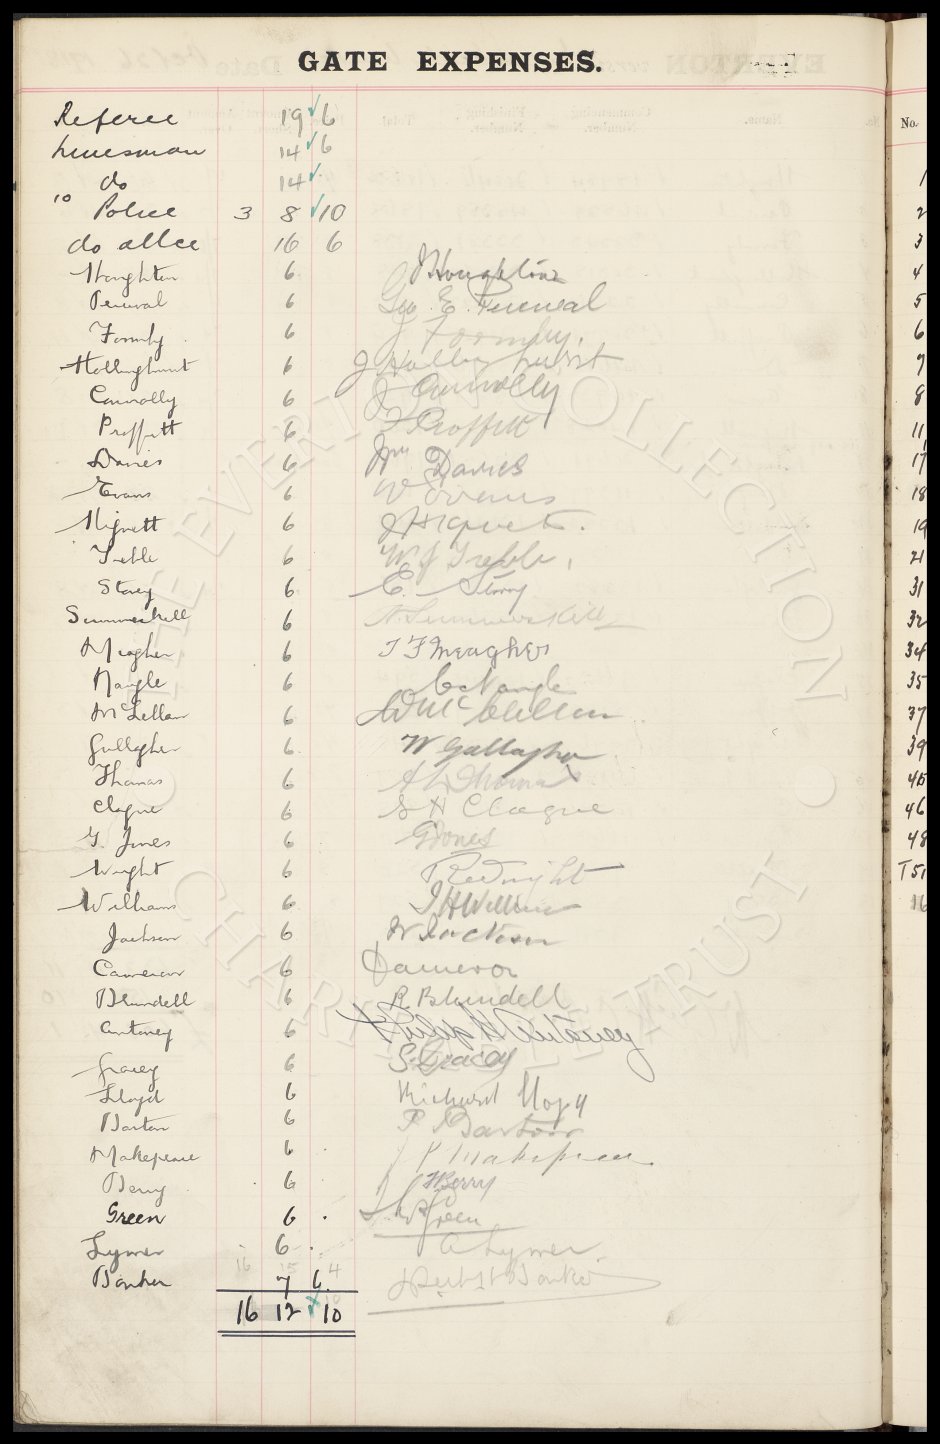 GATE EXPENSES.
Referee 19 6
Linesman 14 6
do 14
10 Police 3 8 10
do allce 16 6
Houghton 6 J Houghton
Percival 6 Geo. E. Percival
Formby 6 J Formby.
Hollinghurst 6 J Hollinghurst
Connolly 6 J Connolly
Proffitt 6 J Proffitt
Davies 6 Jn Davies
Evans 6 W Evans
Hignett 6 J Hignett.
Treble 6 W J Treble.
Storey 6 E. Storey
Summerskill 6 Summerskill
Meagher 6 T F Meagher
Nangle 6 Nangle
McLellan 6 McClellan
Gallagher 6 W Gallagher
Thomas 6 A W Thomas
Clague 6 S H Clague
G. Jones 6 G Jones
Wright 6 Wright
Williams 6 J H Williams
Jackson 6 W Jackson
Cameron 6 Cameron
Blundell 6 R Blundell
Antoney 6 Philip H Antoney
Gracey 6 S. Gracey
Lloyd 6 Richard Lloyd
Barton 6 P Barton
Makepeace 6 Makepeace
Berry 6 Berry
Green 6 Green
Lymer 6 A Lymer
16 15 4
Barker 7 6 Barker
16 12 10
No.
1
2
3
4
5
6
7
8
11
17
18
19
21
31
32
34
35
37
39
45
46
48
T51
16
THE EVERTON COLLECTION CHARITABLE TRUST